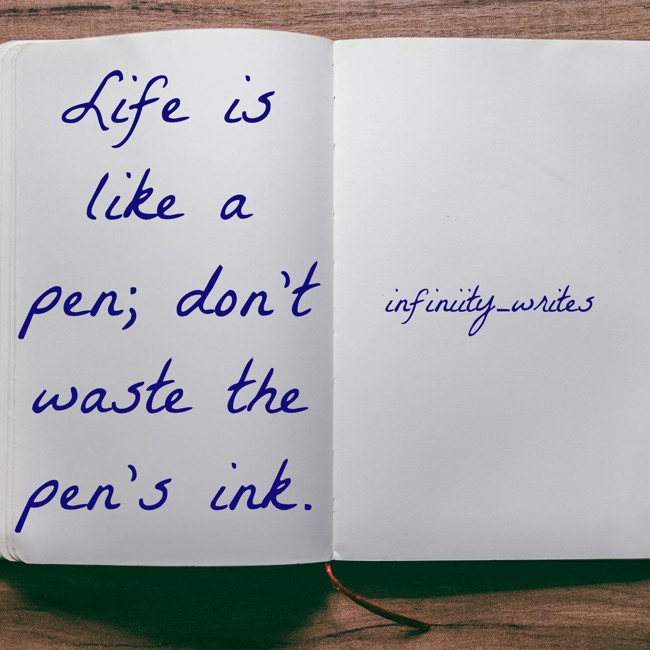 Life is
like a
pen; don't
waste the
pen's ink.
infiniity_writes